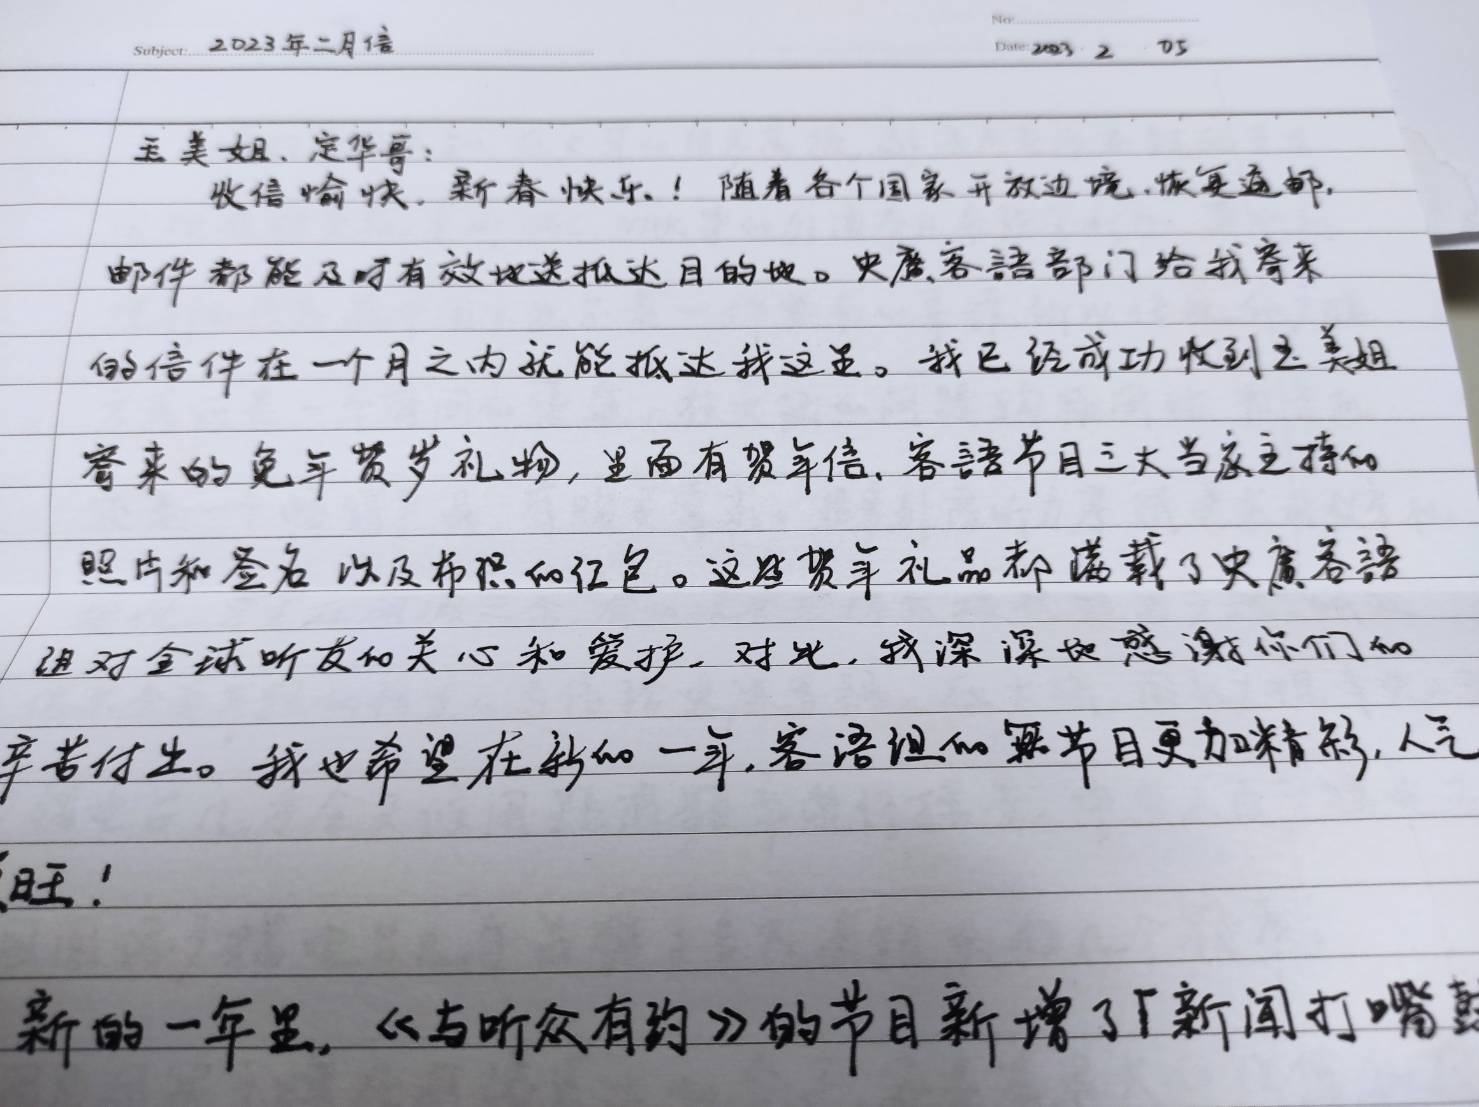 No:
Subject: 2023年二月信
Date: 2023 2 05
玉美姐、定华哥:
收信愉快,新春快乐!随着各个国家开放边境,恢复通邮,
邮件都能及时有效地送抵达目的地。央廣客語部门给我寄来
的信件在一个月之内就能抵达我这里。我已经成功收到玉美姐
寄来的兔年贺岁礼物,里面有贺年信、客語节目三大当家主持的
照片和签名以及布织的红包。这些贺年礼品都满载了央廣客語
组对全球听友的关心和爱护,对此,我深深地感谢你们的
辛苦付出。我也希望在新的一年,客语组的节目更加精彩,人气
旺!
新的一年里,《与听众有约》的节目新增了「新闻打嘴鼓